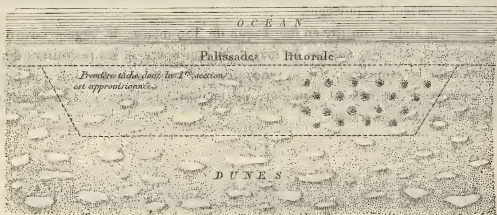 OCÉAN
Palissade littorale
Première tâche dont la 1re section
est approvisionnée.
DUNES